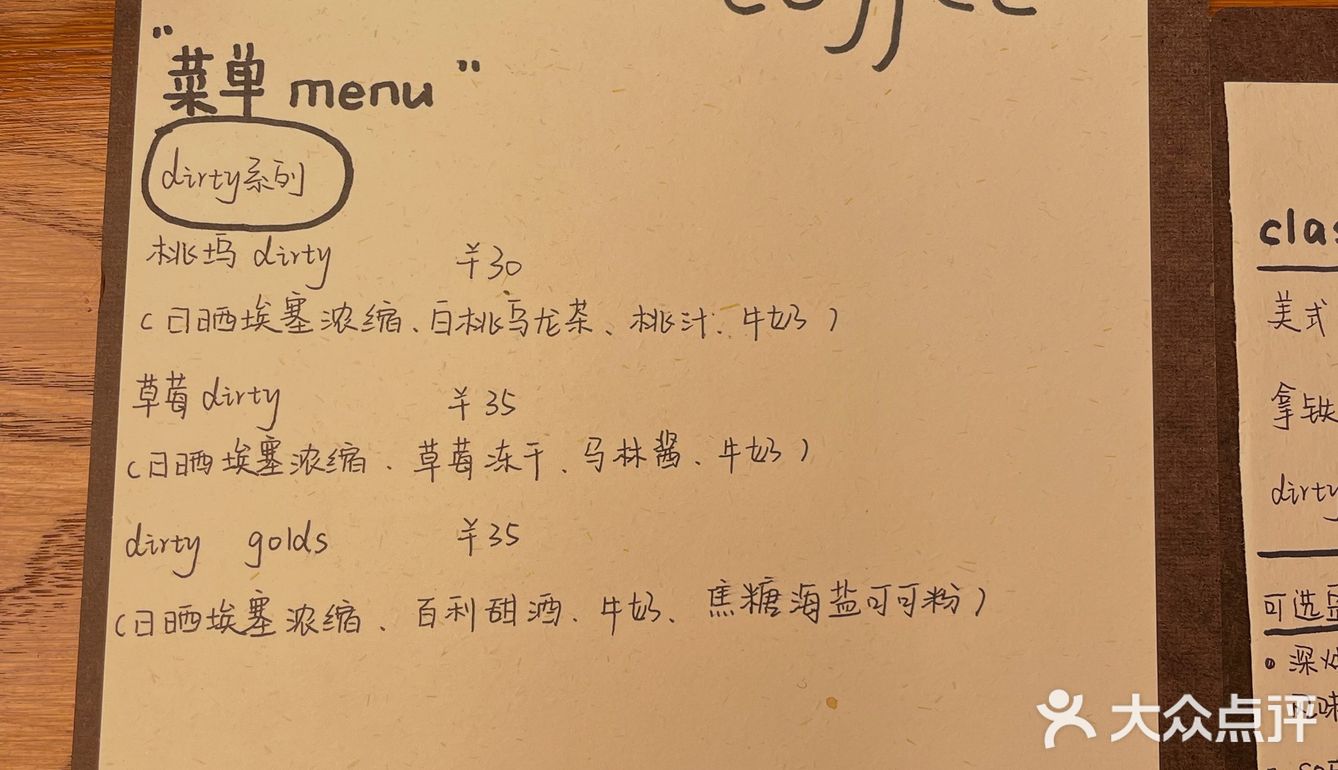 coffee
"菜单 menu"
dirty系列
桃坞 dirty ¥30
(日晒埃塞浓缩、白桃乌龙茶、桃汁、牛奶)
草莓 dirty ¥35
(日晒埃塞浓缩、草莓冻干、马林酱、牛奶)
dirty golds ¥35
(日晒埃塞浓缩、百利甜酒、牛奶、焦糖海盐可可粉)
clas
美式
拿铁
dirty
可选豆
• 深
风味
大众点评